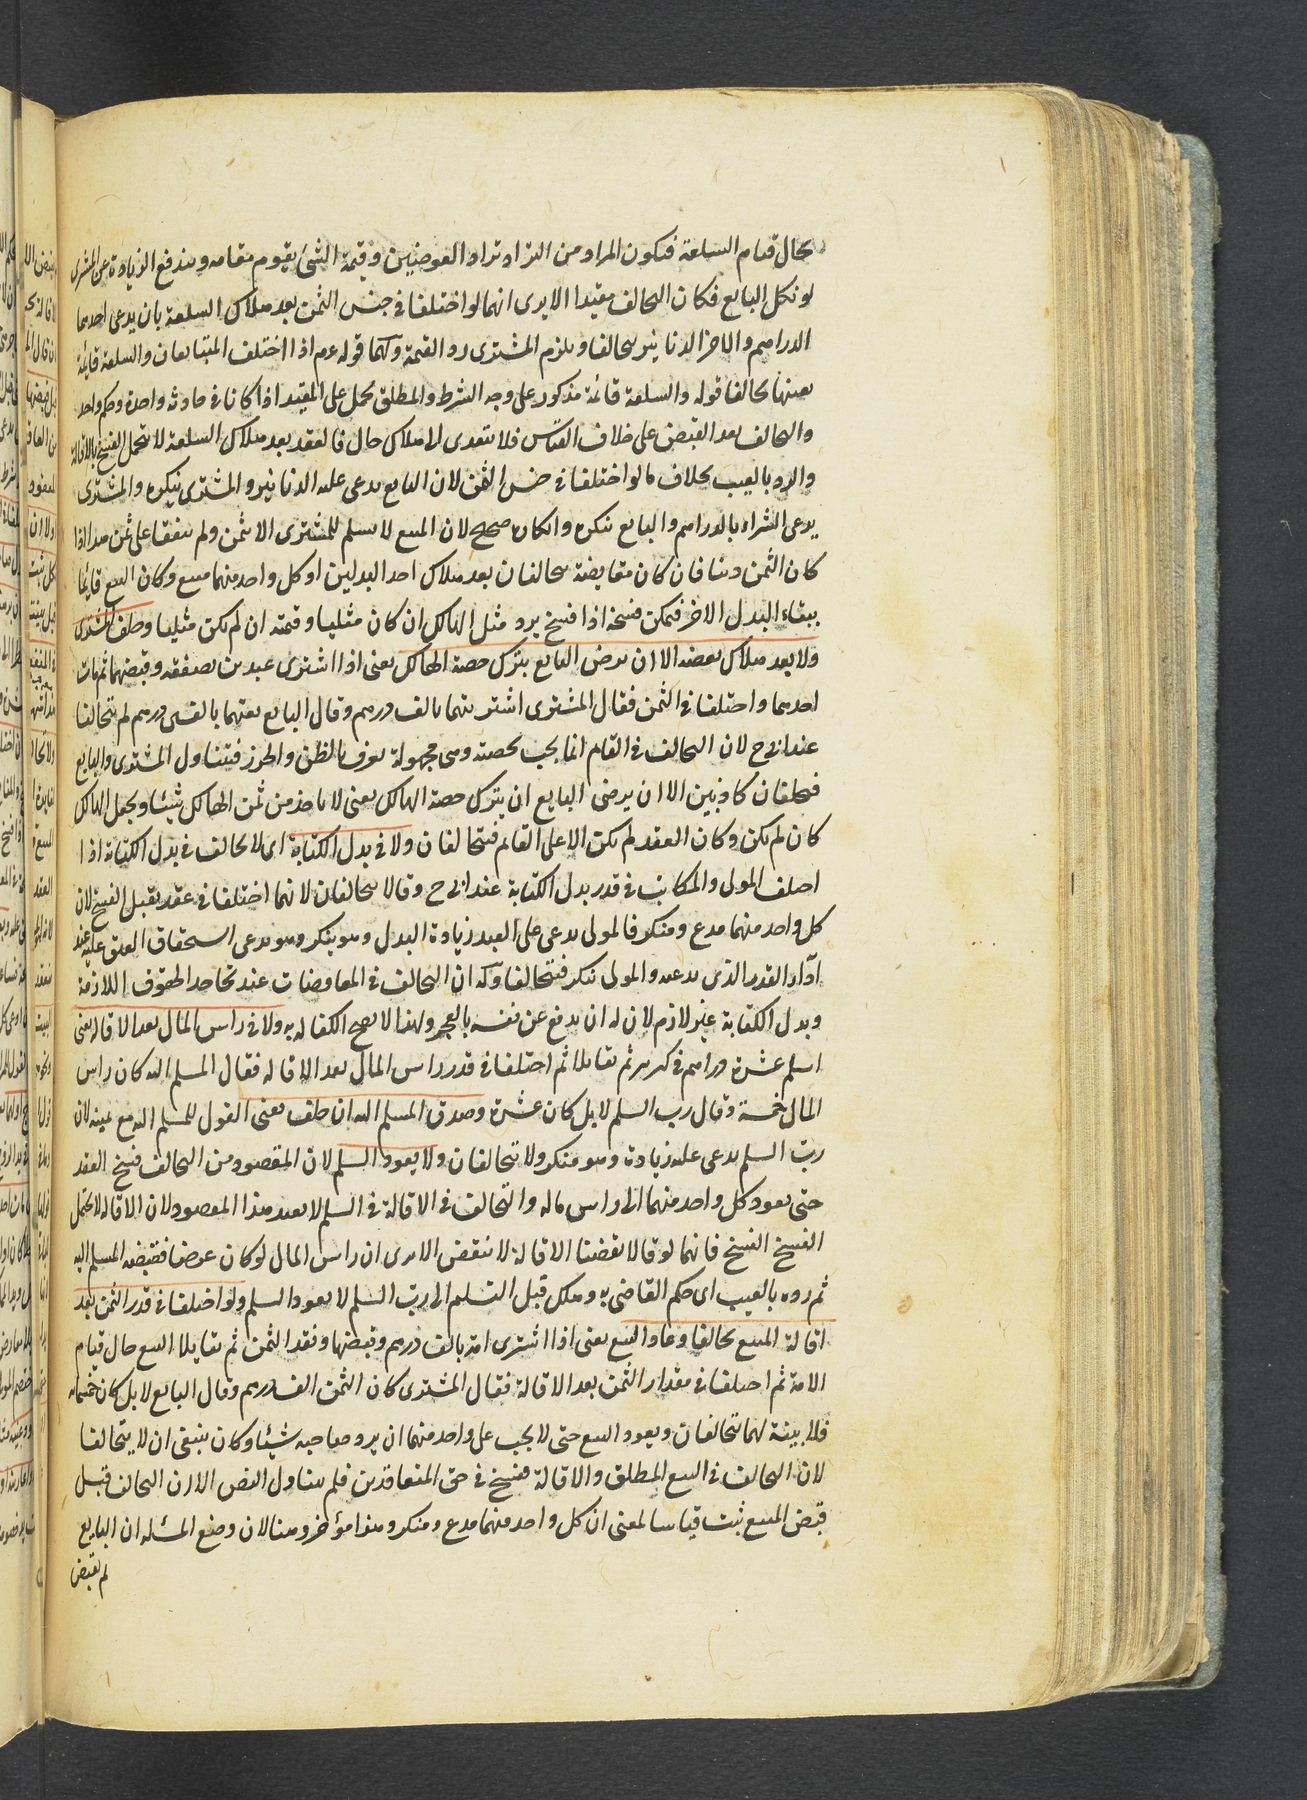 بحال قيام السلعة فيكون المراد من التراد تراد العوضين وقيمة الشئ يقوم مقامه ويندفع الزيادة عن المشترى
لو نكل البايع فكان التحالف مقيدا الا يرى انهما لو اختلفا فى جنس الثمن بعد هلاك السلعة بان يدعى احدهما
الدراهم والاخر الدنانير تحالفا ويلزم المشترى رد القيمة ولهما قوله عم اذا اختلف المتبايعان والسلعة قايمة
بعينها تحالفا قوله والسلعة قائمة مذكور على وجه الشرط والمطلق يحمل على المقيد اذا كانا فى حادثه واحدة وحكم واحد
والتحالف بعد القبض على خلاف القياس فلا يتعدى الى هلاك حال فالعقد بعد هلاك السلعة لا يحتمل الفسخ بالاقالة
والرد بالعيب بخلاف ما لو اختلفا فى جنس الثمن لان البايع يدعى عليه الدنانير والمشترى ينكره والمشترى
يدعى الشراء بالدراهم والبايع ينكره وانكاره صحيح لان المبيع لا يسلم للمشترى الا بثمن ولم يتفقا على ثمن هذا اذا
كان الثمن دينا فان كان مقايضة يتحالفان بعد هلاك احد البدلين اذ كل واحد منهما مبيع وكان البيع قايما
ببقاء البدل الاخر فيمكن فسخه اذا فسخ يرد مثل الهالك ان كان مثليا وقيمته ان لم يكن مثليا وحلف المشترى
ولا بعد هلاك بعضه الا ان يرضى البايع بترك حصة الهالك يعنى اذا اشترى عبدين بصفقه وقبضهما ثم مات
احدهما واختلفا فى الثمن فقال المشترى اشتريتهما بالف درهم وقال البايع بعتهما بالفى درهم لم يتحالفا
عند ابى ح لان التحالف فى القايم انما يجب بحصته وهى مجهولة تعرف بالظن والحرز فيتناول المشترى والبايع
فيحلفان كاذبين الا ان يرضى البايع ان يترك حصة الهالك يعنى لا ياخذ من ثمن الهالك شيئا ويجعل الهالك
كان لم يكن وكان العقد لم يكن الا على القايم فيتحالفان ولا فى بدل الكتابة اى لا تحالف فى بدل الكتابة اذا
اختلف المولى والمكاتب فى قدر بدل الكتابة عند ابى ح وقالا يتحالفان لانهما اختلفا فى عقد يقبل الفسخ لان
كل واحد منهما مدع ومنكر فالمولى يدعى على العبد زيادة البدل وهو ينكر وهو يدعى استحقاق العتق عليه عند
اداء القدر الذى يدعيه والمولى ينكر فيتحالفا وله ان التحالف فى المعاوضات عند تجاحد الحقوق اللازمة
وبدل الكتابة غير لازم لان له ان يدفع عن نفسه بالعجز ولهذا لا يصح الكفالة به ولا فى راس المال بعد الاقالة يعنى
اسلم عشرة دراهم فى كر بر ثم تقايلا ثم اختلفا فى قدر راس المال بعد الاقالة فقال المسلم اليه كان راس
المال خمسة وقال رب السلم لا بل كان عشرة وصدق المسلم اليه ان حلف يعنى القول للمسلم اليه مع يمينه لان
رب السلم يدعى عليه زيادة وهو منكر ولا يتحالفان ولا يعود السلم لان المقصود من التحالف فسخ العقد
حتى يعود كل واحد منهما الى راس ماله والتحالف فى الاقالة فى السلم لا يفيد هذا المقصود لان الاقالة لا يحتمل
الفسخ الفسخ فانهما لو قالا نقضنا الاقالة لا ينتقض الا يرى ان راس المال لو كان عرضا فقبضه المسلم اليه
ثم رده بالعيب اى حكم القاضى به وهلك قبل التسليم الى رب السلم لا يعود السلم ولو اختلفا فى قدر الثمن بعد
اقالة المبيع تحالفا وعاد البيع يعنى اذا اشترى امة بالف درهم وقبضها ونقد الثمن ثم تقايلا البيع حال قيام
الامة ثم اختلفا فى مقدار الثمن بعد الاقالة فقال المشترى كان الثمن الف درهم وقال البايع لا بل كان خمسمائه
فلا بينة لهما يتحالفان ويعود البيع حتى لا يجب على واحد منهما ان يرد صاحبه شيئا وكان ينبغى ان لا يتحالفا
لان التحالف فى البيع المطلق والاقالة فسخ فى حق المتعاقدين فلم يتناول النص الا ان التحالف قبل
قبض المبيع ثبت قياسا لمعنى ان كل واحد منهما مدع ومنكر وهذا مؤخر وهنا لان وضع المسئله ان البايع
لم يقبض